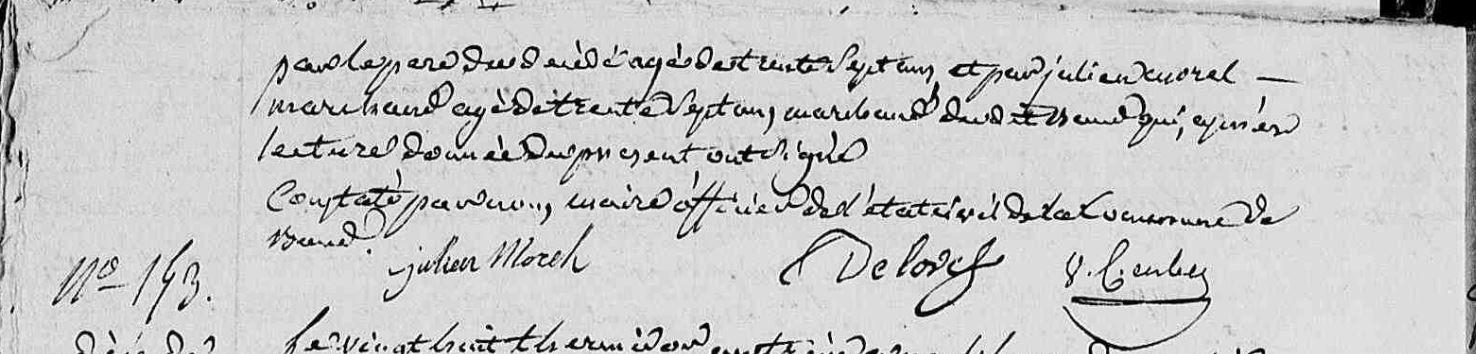 par le pere du decédé agé de trente sept ans, et par julien morel —
marchand agé de trente sept ans, marchand dudit Baud qui, après
lecture donnée du present ont signé
Constaté par nous, maire officier de l'état civil de la Commune de
Baud
julien Morel
N° 153.
Le vingt huit thermidor